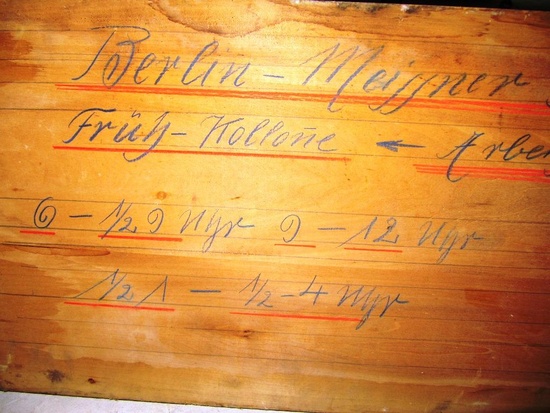 Berlin – Meissner
Früh-Kollone ← Arbe
6 – 1/2 9 Uhr 9 – 12 Uhr
1/2 1 – 1/2-4 Uhr